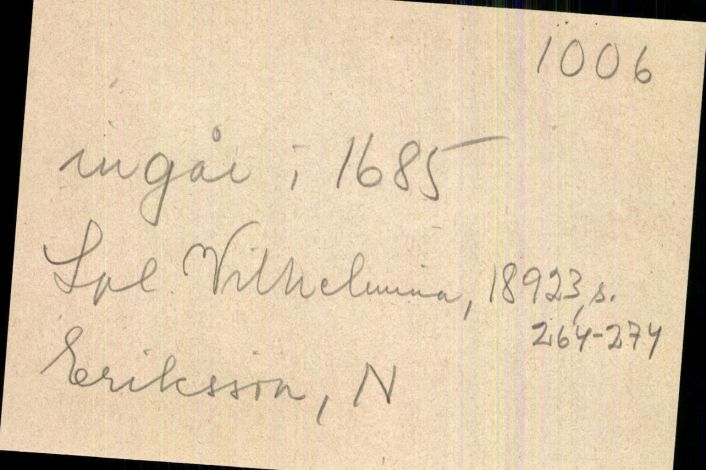 1006
ingår i 1685
Spl. Vilhelmina, 18923, s.
264-274
Eriksson, N